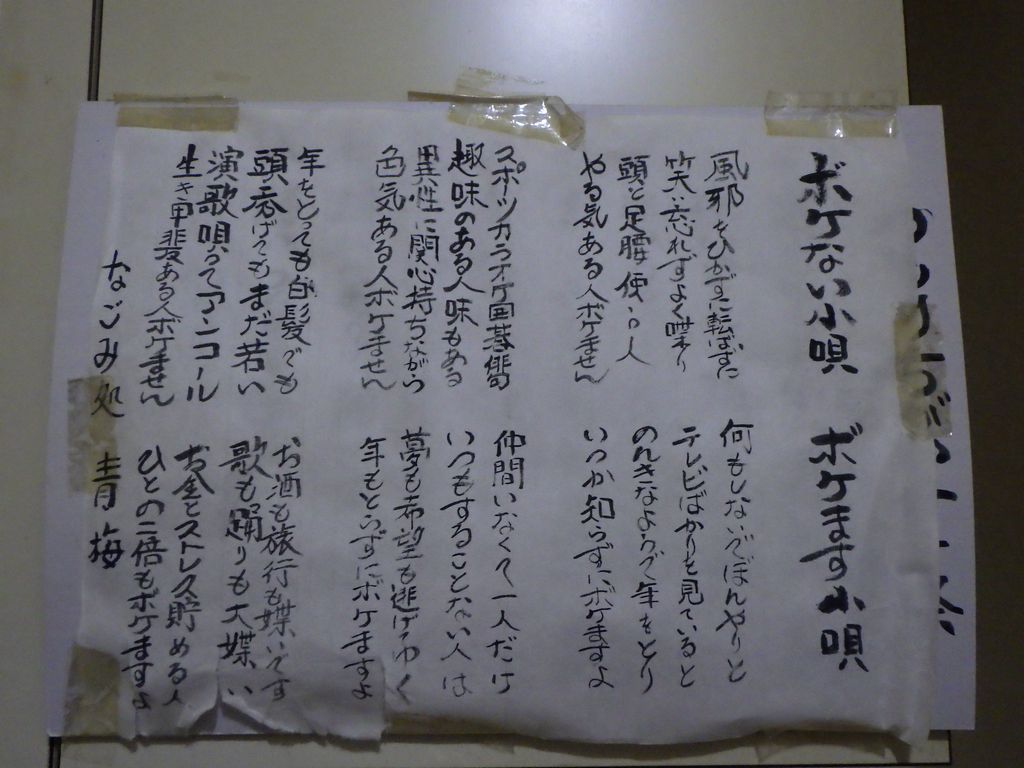 ボケない小唄
風邪をひかずに転ばずに
笑い忘れずよく喋り
頭と足腰使う人
やる気ある人ボケません
スポーツカラオケ囲碁俳句
趣味のある人味もある
異性に関心持ちながら
色気ある人ボケません
年をとっても白髪でも
頭禿げてもまだ若い
演歌唄ってアンコール
生き甲斐ある人ボケません
ボケます小唄
何もしないでぼんやりと
テレビばかりを見ていると
のんきなようで年をとり
いつか知らずにボケますよ
仲間いなくて一人だけ
いつもすることない人は
夢も希望も逃げてゆく
年もとらずにボケますよ
お酒も旅行も嫌いです
歌も踊りも大嫌い
お金とストレス貯める人
ひとの二倍もボケますよ
なごみ処 青梅